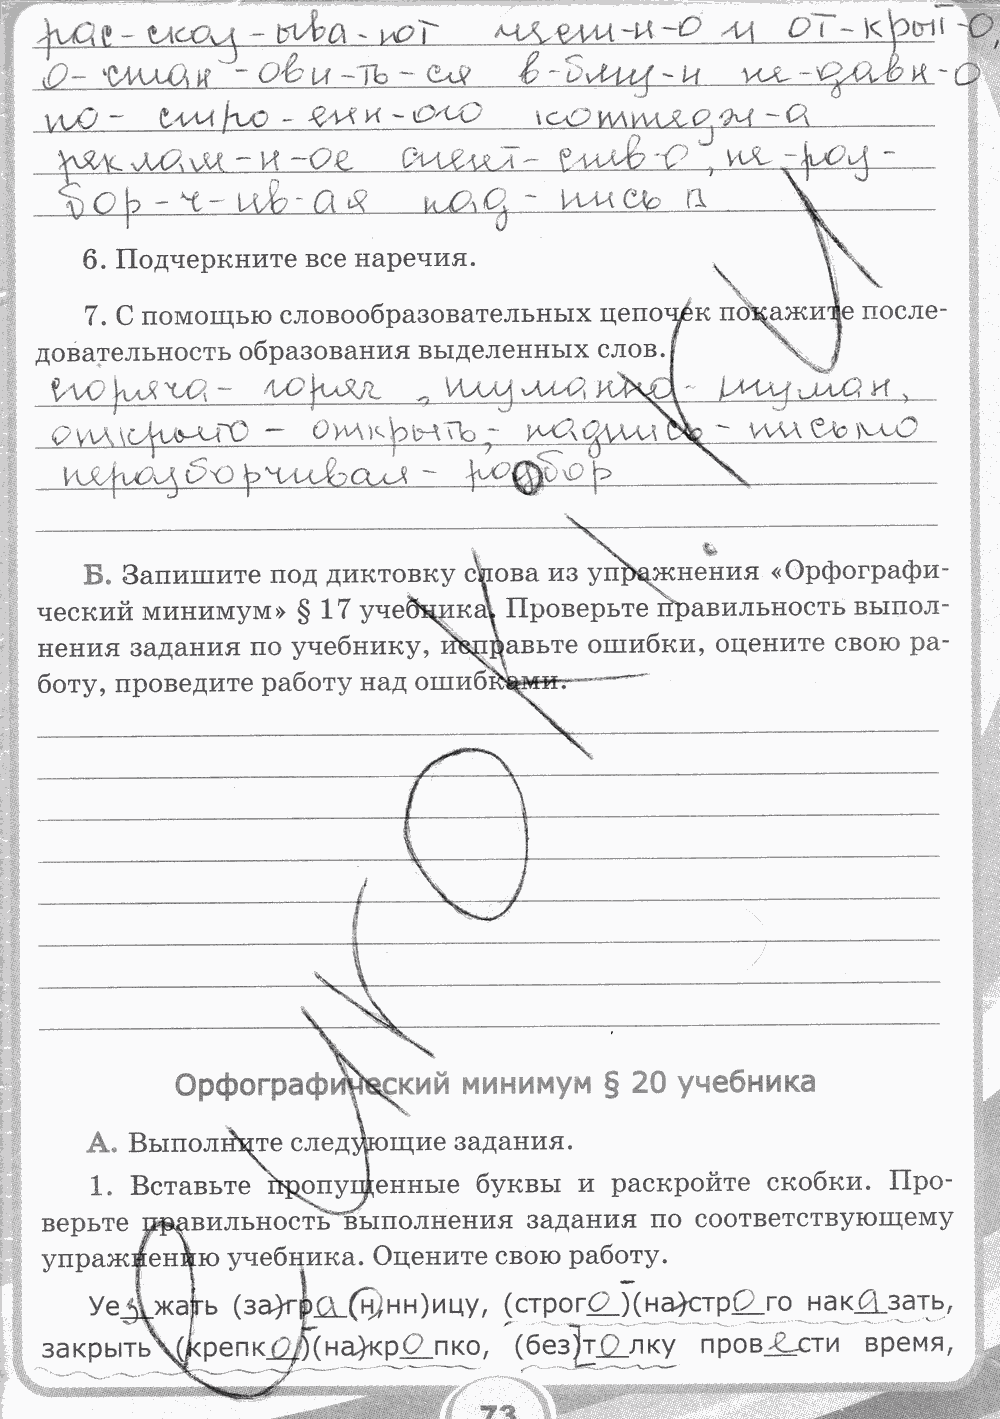 рас-сказ-ыва-ют умест-н-о и от-крыт-о,
о-стан-ови-ть-ся в-близ-и не-давн-о
по-стро-енн-ого коттедж-а
реклам-н-ое агент-ств-о, не-раз-
бор-ч-ив-ая над-пись
6. Подчеркните все наречия.
7. С помощью словообразовательных цепочек покажите после-
довательность образования выделенных слов.
сгоряча - горяч, туманно - туман,
открыто - открыть, надпись - письмо
неразборчивая - разбор
Б. Запишите под диктовку слова из упражнения «Орфографи-
ческий минимум» § 17 учебника. Проверьте правильность выпол-
нения задания по учебнику, исправьте ошибки, оцените свою ра-
боту, проведите работу над ошибками.
Орфографический минимум § 20 учебника
А. Выполните следующие задания.
1. Вставьте пропущенные буквы и раскройте скобки. Про-
верьте правильность выполнения задания по соответствующему
упражнению учебника. Оцените свою работу.
Уезжать (за)гра(н,нн)ицу, (строго)(на)строго наказать,
закрыть (крепко)(на)крепко, (без)толку провести время,
73